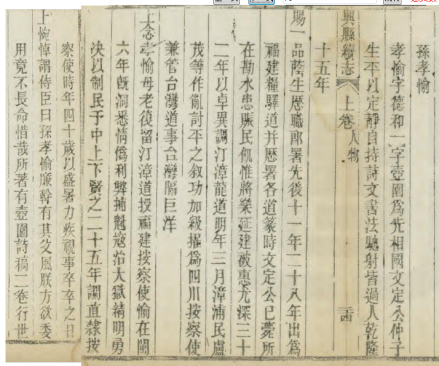 孫孝愉
孝愉字德和一字壺園爲先相國文定公仲子
生平以定靜自持詩文書法騎射皆過人乾隆
興縣續志 上卷 人物
十五年
場一品蔭生歷職郎署先後十一年二十八年出爲
福建糧驛道並歷署各道篆時文定公已薨所
在勘水患賑民饑惟將樂延建被惠尤深三十
二年以卓異調汀漳龍道明年三月漳浦民盧
茂等作亂討平之敘功加級擢爲四川按察使
兼管台灣道事台灣隔巨洋
太恭孝愉母老復留汀漳道授福建按察使愉在閩
六年旣洞悉情僞利弊捕魁寇治大獄精明勇
決以制民于中上下賢之二十五年調直隸按
察使時年四十歲以盛暑力疾視事卒卒之日
上惋悼謂侍臣曰孫孝愉廉幹有其父風朕方欲委
用竟不長命惜哉所著有壺園詩稿二卷行世